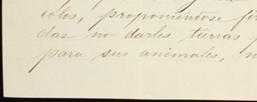 colos, proponiéndose fir
das no darles tierras p
para sus animales, n